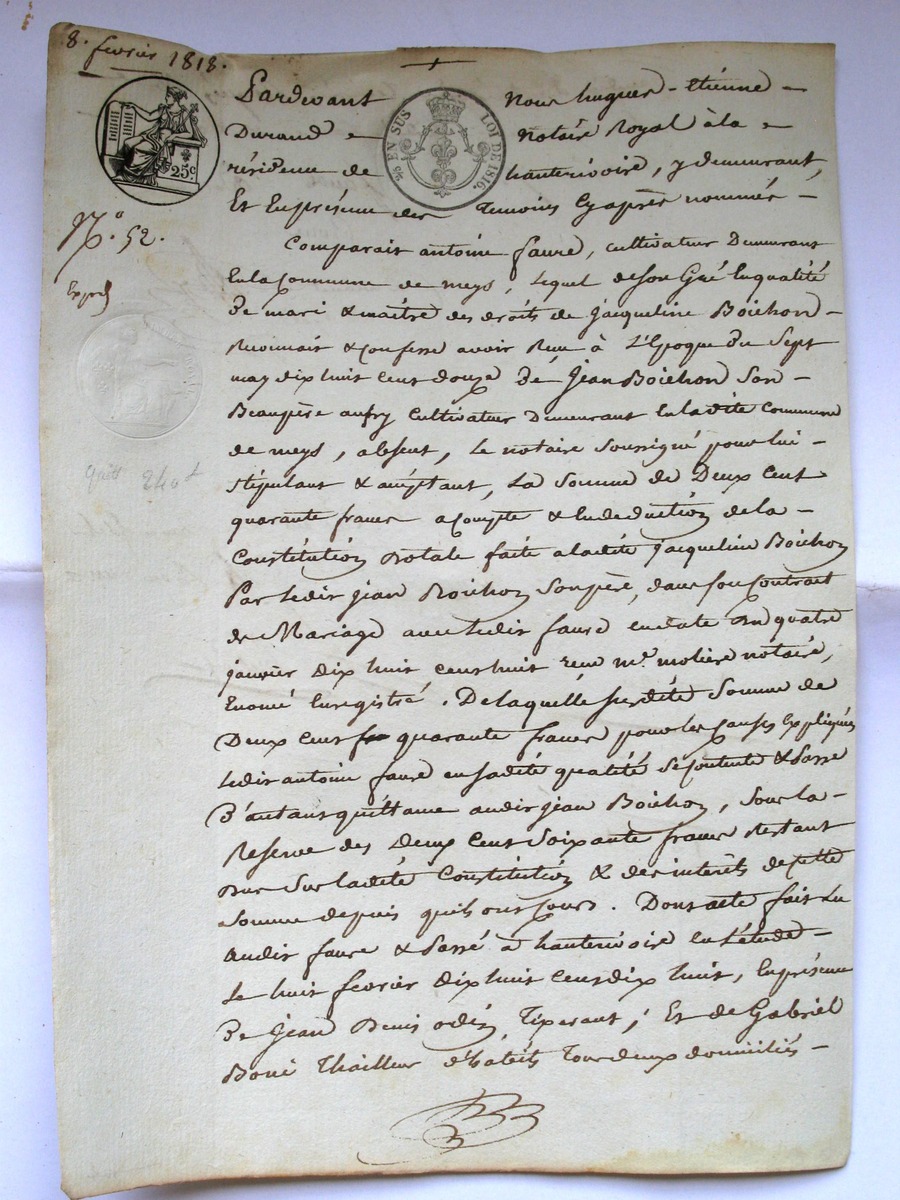 8. fevrier 1818.
25c
25 EN SUS LOI DE 1816.
N.o 52.
Expéd
quitt 240 #
Pardevant Nous hugues-étienne -
Durand - notaire Royal à la -
résidence de hauterivoire, y demeurant,
Et En présence des temoins Cy après nommés -
Comparait antoine faure, cultivateur Demeurant
En la Commune de meys, Lequel de son Gré En qualité
De mari & maître des droits de jacqueline Boichon -
Reconnait & confesse avoir Reçu à L'Epoque Du Sept
may dix huit cent douze De jean Boichon Son -
Beaupère aussy Cultivateur Demeurant En la dite Commune
de meys, absent, Le notaire soussigné pour lui -
stipulant & acceptant, La somme de Deux cent
quarante francs acompte & En deduction de la -
Constitution Dotale faite a ladite jacqueline Boichon
Par ledit jean Boichon Son père, dans son Contrat
de Mariage avec ledit faure en date du quatre
janvier dix huit cent huit reçu me. moliere notaire,
Enregistré. De laquelle susdite Somme de
Deux cent quarante francs pour les Causes Expliquées
ledit antoine faure en sadite qualité se contente & Passe
D'autant quittance audit jean Boichon, Sous la -
Reserve des Deux cent Soixante francs Restant
Dus Sur ladite Constitution & des interets de cette
Somme depuis qu'ils ont Cours. Dont acte fait Lu
audit faure & Passé à hauterivoire en L'étude -
Le huit fevrier dix huit cent dix huit, En présence
De jean Denis odin, Tixerant, Et de Gabriel
Boni Thailleur d'habits Tous deux domiciliés -